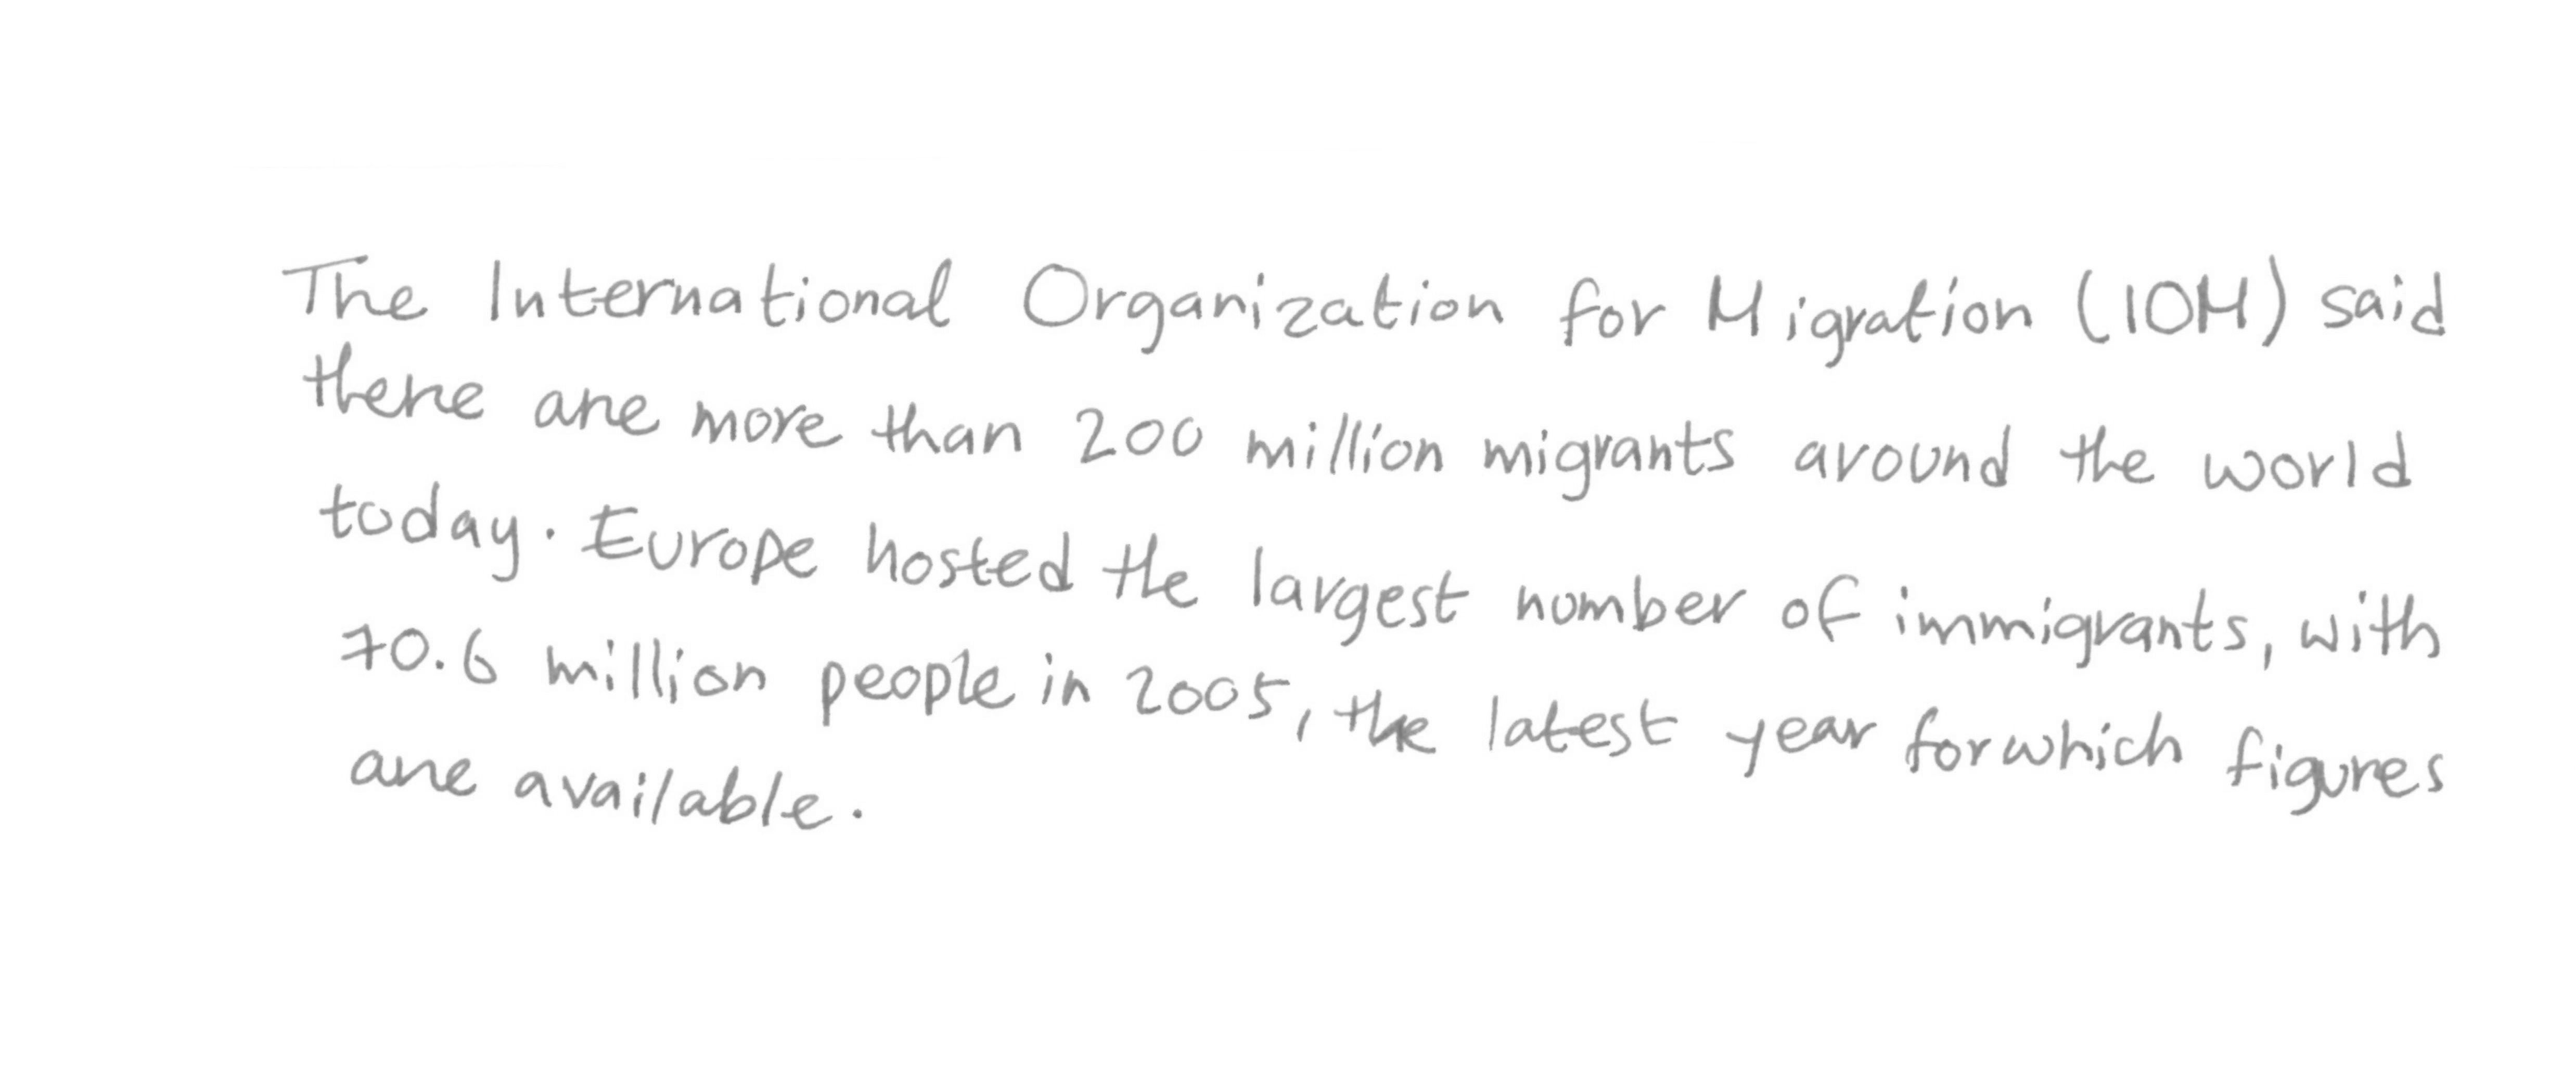 The International Organization for Migration (IOM) said
there are more than 200 million migrants around the world
today. Europe hosted the largest number of immigrants, with
70.6 million people in 2005, the latest year for which figures
are available.